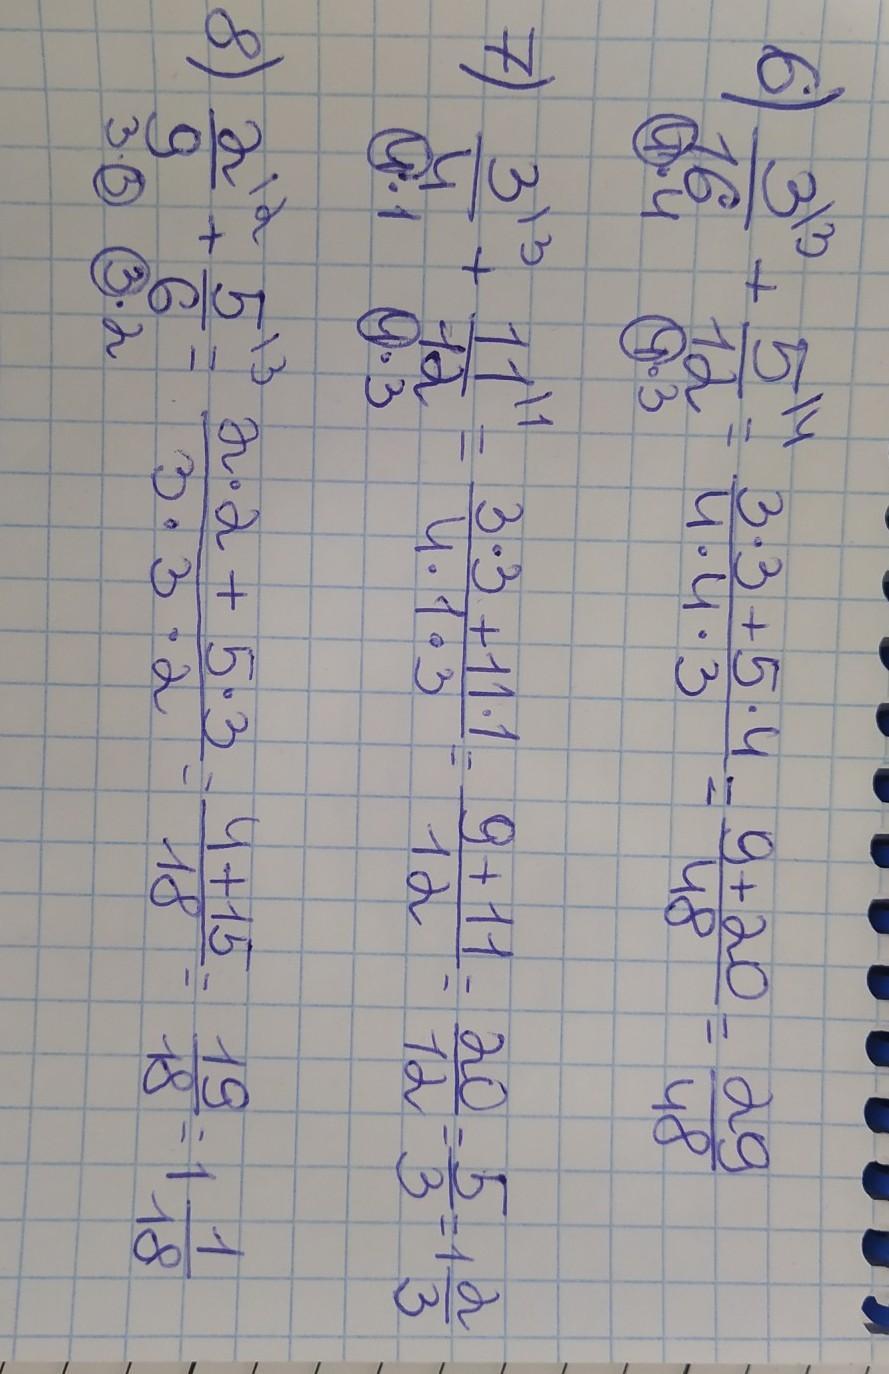 6) 3\3/16 + 5\4/12 = (3·3+5·4)/(4·4·3) = (9+20)/48 = 29/48
4·4 4·3
7) 3\3/4 + 11\1/12 = (3·3+11·1)/(4·1·3) = (9+11)/12 = 20/12 = 5/3 = 1 2/3
4·1 4·3
8) 2\2/9 + 5\3/6 = (2·2+5·3)/(3·3·2) = (4+15)/18 = 19/18 = 1 1/18
3·3 3·2